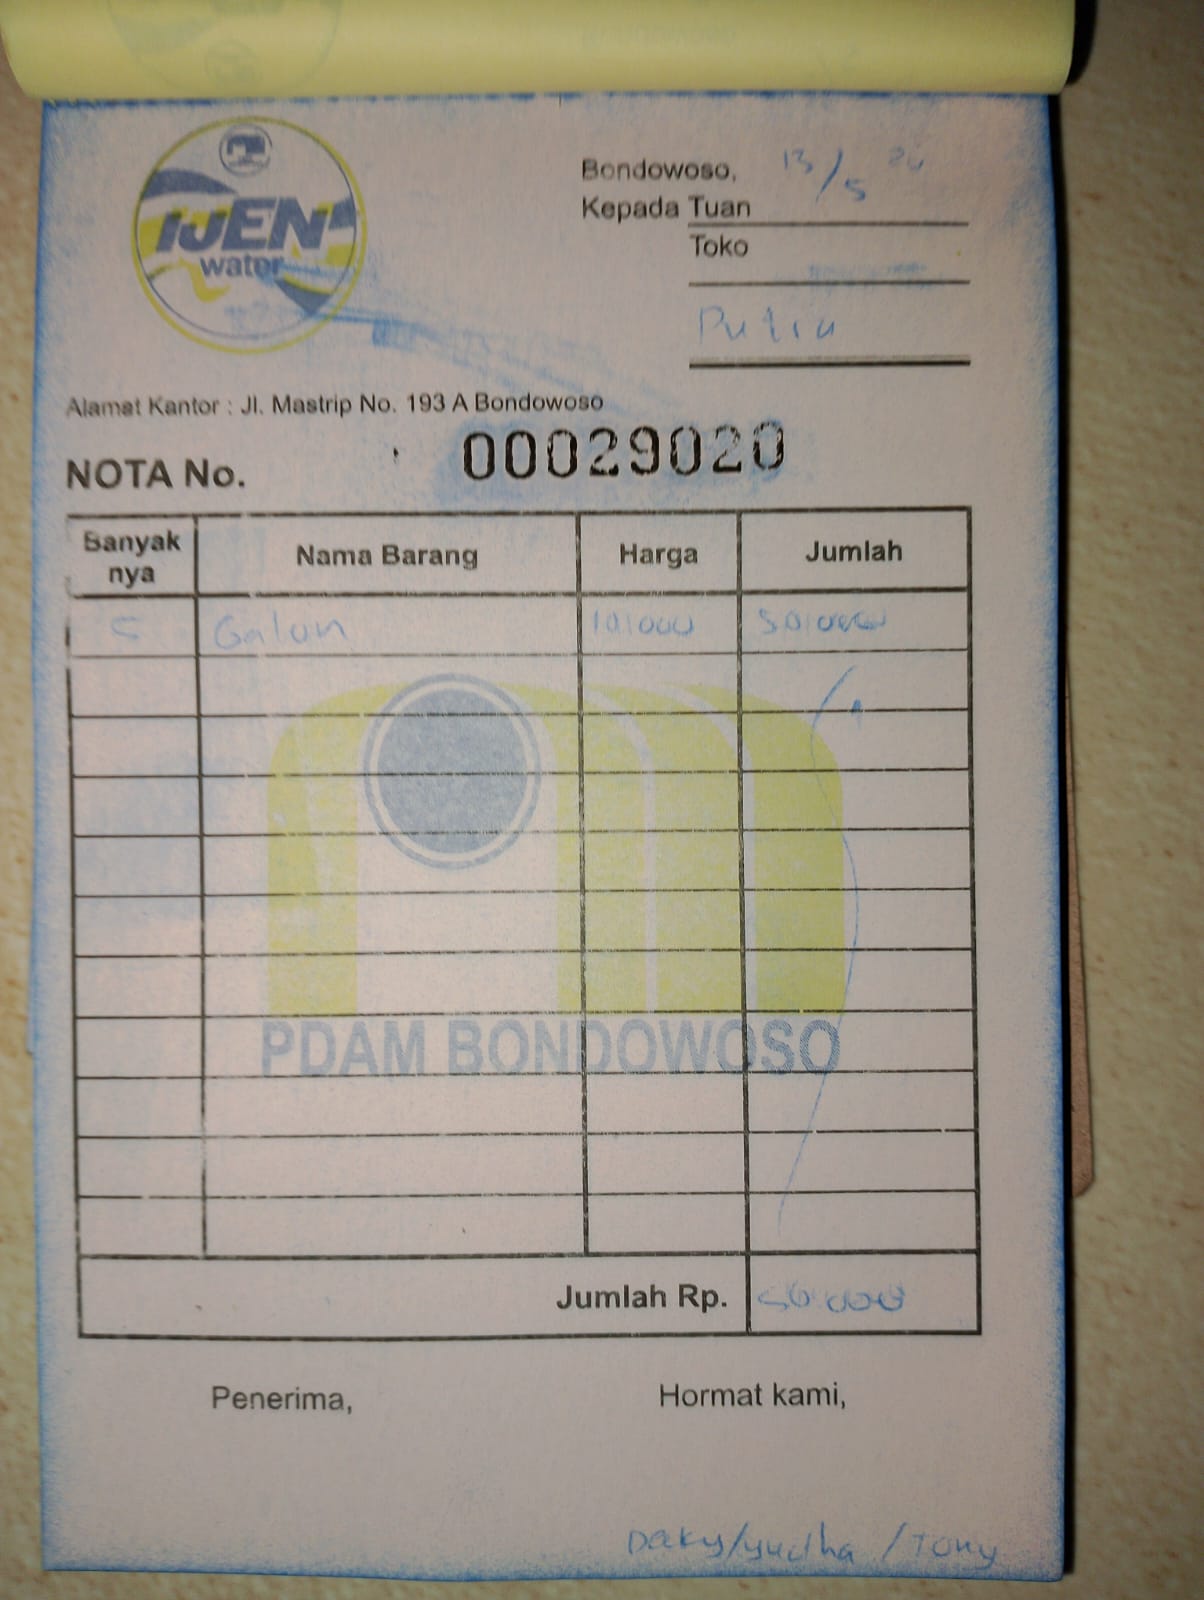 IJEN
water
Bondowoso, 13/5
Kepada Tuan
Toko
Putra
Alamat Kantor : Jl. Mastrip No. 193 A Bondowoso
NOTA No. 00029020
Banyak nya Nama Barang Harga Jumlah
5 Galon 10.000 50.000
PDAM BONDOWOSO
Jumlah Rp. 50.000
Penerima, Hormat kami,
Deky/yudha/Tony